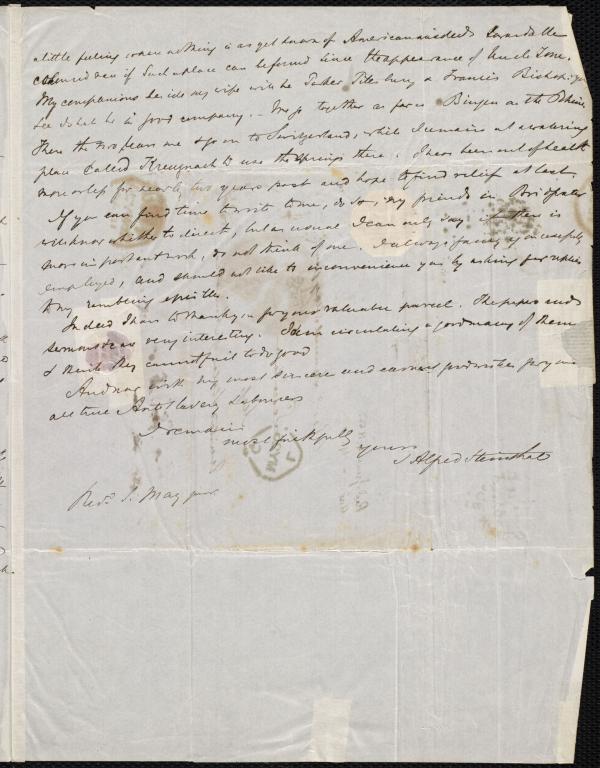 a little feeling or now nothing is as yet known of American misdeeds towards the
coloured man if such a place can be found since the appearance of Uncle Tom.
My companions beside my wife will be Father Francis Bishop; you
see I shall be in good company. — We go together as far as Bingen on the Rhine
There the two leave me & go on to Switzerland, while I remain at a watering
place called Kreuznach to use the springs there. I have been out of health
more or less for nearly two years past and hope to find relief at last.
If you can find time to write to me, do so, my friends in Bridgwater
will know whither to direct, but as usual I can only say if there is
more important work, do not think of me. I always fancy you usefully
employed, and should not like to inconvenience you by asking for replies
to my rambling epistles.
Indeed I have to thank you for your valuable parcel. The papers and
sermons are very interesting. I am circulating a good many of them
& think they cannot fail to do good
And now with my most sincere and earnest good wishes for you and
all true Anti Slavery Labourers
I remain
most faithfully yours
J Alfred Steinthal
Revd. S. May junr.